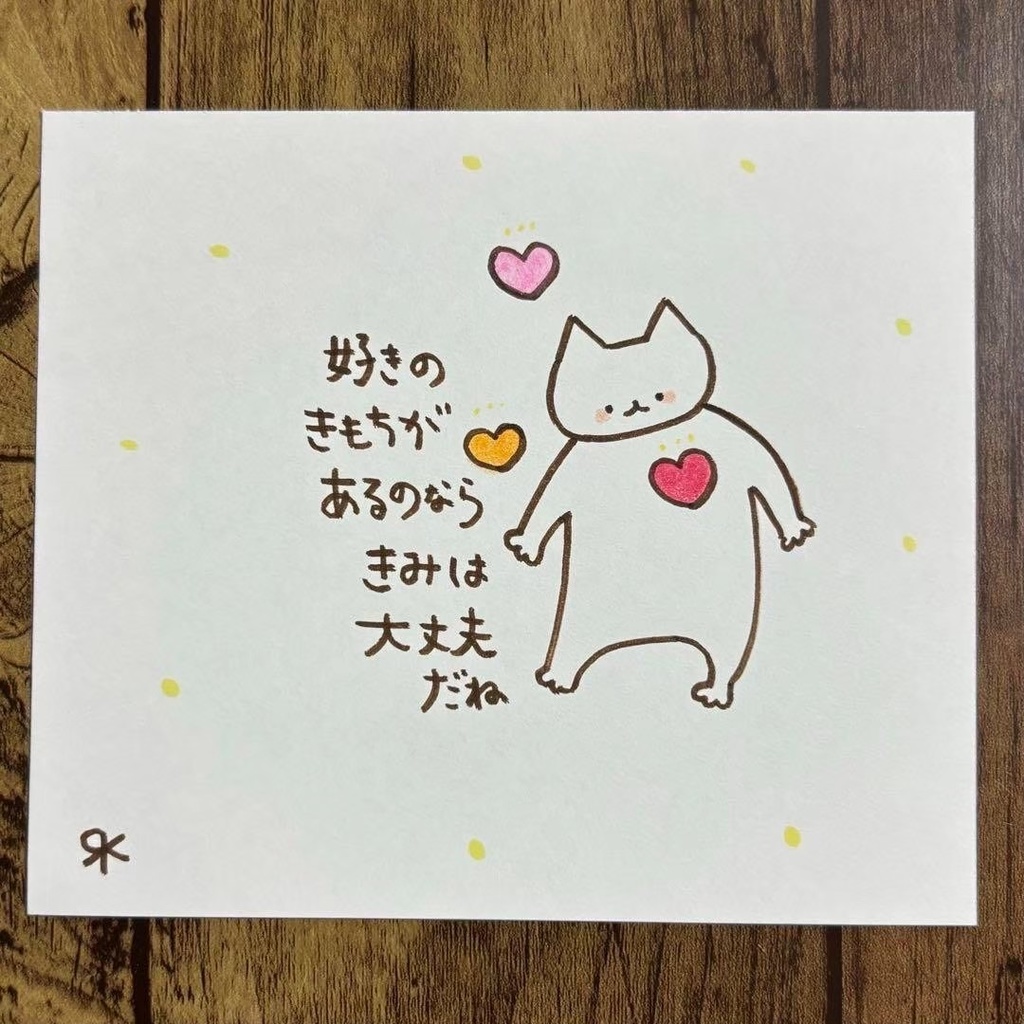 好きの
きもちが
あるのなら
きみは
大丈夫
だね
RK